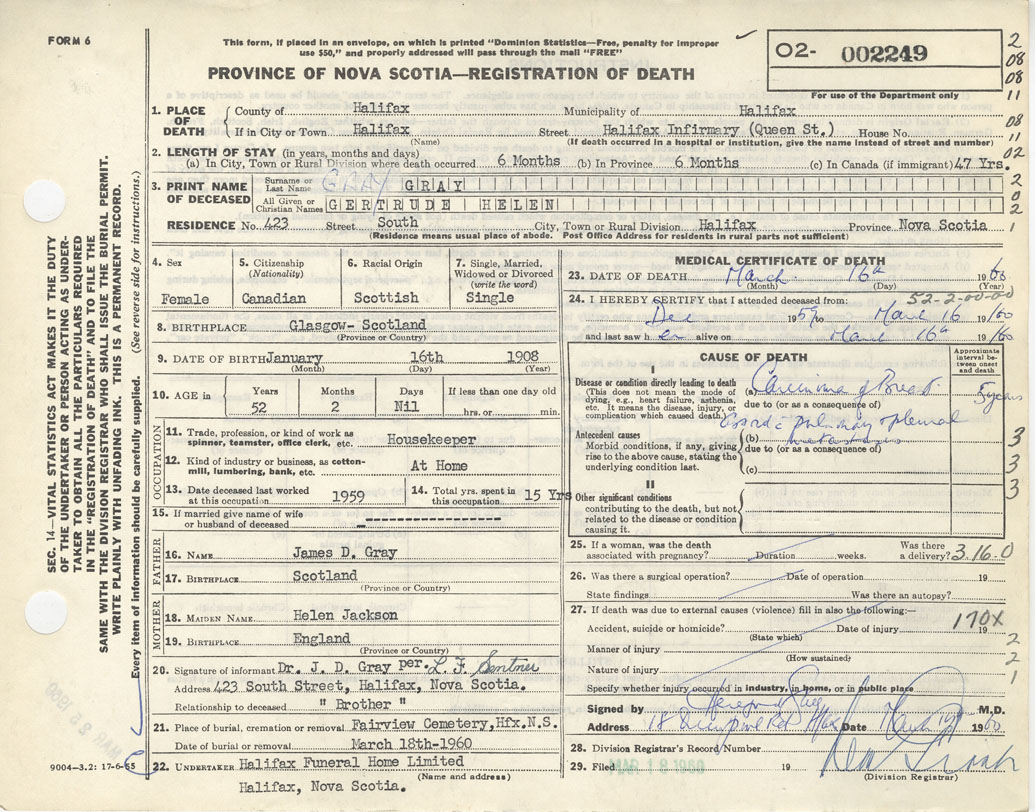 FORM 6
This form, if placed in an envelope, on which is printed "Dominion Statistics—Free, penalty for improper
use $50," and properly addressed will pass through the mail "FREE"
PROVINCE OF NOVA SCOTIA—REGISTRATION OF DEATH
02- 002249
For use of the Department only
2
08
08
11
08
11
02
2
0
2
1
1. PLACE OF DEATH
County of Halifax Municipality of Halifax
If in City or Town Halifax Street Halifax Infirmary (Queen St.) House No.
(Name) (If death occurred in a hospital or institution, give the name instead of street and number)
2. LENGTH OF STAY (in years, months and days)
(a) In City, Town or Rural Division where death occurred 6 Months (b) In Province 6 Months (c) In Canada (if immigrant) 47 Yrs.
3. PRINT NAME OF DECEASED
Surname or Last Name GRAY GRAY
All Given or Christian Names GERTRUDE HELEN
RESIDENCE No. 423 Street South City, Town or Rural Division Halifax Province Nova Scotia
(Residence means usual place of abode. Post Office Address for residents in rural parts not sufficient)
4. Sex
Female
5. Citizenship (Nationality)
Canadian
6. Racial Origin
Scottish
7. Single, Married, Widowed or Divorced (write the word)
Single
8. BIRTHPLACE Glasgow- Scotland
(Province or Country)
9. DATE OF BIRTH January 16th 1908
(Month) (Day) (Year)
10. AGE in
Years Months Days If less than one day old
52 2 Nil hrs. or min.
OCCUPATION
11. Trade, profession, or kind of work as spinner, teamster, office clerk, etc. Housekeeper
12. Kind of industry or business, as cotton-mill, lumbering, bank, etc. At Home
13. Date deceased last worked at this occupation 1959
14. Total yrs. spent in this occupation 15 Yrs
15. If married give name of wife or husband of deceased
FATHER
16. NAME James D. Gray
17. BIRTHPLACE Scotland
(Province or Country)
MOTHER
18. MAIDEN NAME Helen Jackson
19. BIRTHPLACE England
(Province or Country)
20. Signature of informant Dr. J. D. Gray per. L. F. Sentner
Address 423 South Street, Halifax, Nova Scotia.
Relationship to deceased " Brother "
21. Place of burial, cremation or removal Fairview Cemetery, Hfx, N.S.
Date of burial or removal March 18th-1960
22. UNDERTAKER Halifax Funeral Home Limited
(Name and address)
Halifax, Nova Scotia.
MEDICAL CERTIFICATE OF DEATH
23. DATE OF DEATH March 16th 1960
(Month) (Day) (Year)
52-2-00-00
24. I HEREBY CERTIFY that I attended deceased from:
Dec 1959 to March 16 1960
and last saw her alive on March 16th 1960
CAUSE OF DEATH
Approximate interval between onset and death
I
Disease or condition directly leading to death
(This does not mean the mode of dying, e.g., heart failure, asthenia, etc. It means the disease, injury, or complication which caused death.)
(a) Carcinoma of Breast 5 years
due to (or as a consequence of)
Antecedent causes
Morbid conditions, if any, giving rise to the above cause, stating the underlying condition last.
pulmonary & pleural
(b) metastases
due to (or as a consequence of)
(c)
3
3
3
II
Other significant conditions
contributing to the death, but not related to the disease or condition causing it.
25. If a woman, was the death associated with pregnancy? Duration weeks. Was there a delivery? 3.16.0
26. Was there a surgical operation? Date of operation 19
State findings Was there an autopsy?
27. If death was due to external causes (violence) fill in also the following:—
170X
Accident, suicide or homicide? Date of injury 19
(State which)
Manner of injury
(How sustained)
Nature of injury
2
2
1
Specify whether injury occurred in industry, in home, or in public place
Signed by M.D.
Address 18 Date March 1960
28. Division Registrar's Record Number
29. Filed MAR 18 1960 19
(Division Registrar)
SEC. 14—VITAL STATISTICS ACT MAKES IT THE DUTY
OF THE UNDERTAKER OR PERSON ACTING AS UNDER-
TAKER TO OBTAIN ALL THE PARTICULARS REQUIRED
IN THE "REGISTRATION OF DEATH" AND TO FILE THE
SAME WITH THE DIVISION REGISTRAR WHO SHALL ISSUE THE BURIAL PERMIT.
WRITE PLAINLY WITH UNFADING INK. THIS IS A PERMANENT RECORD.
Every item of information should be carefully supplied. (See reverse side for instructions.)
MAR 25 1960
9004—3.2: 17-6-55